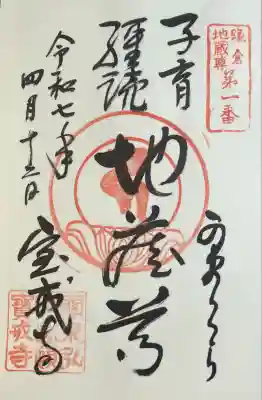 鎌倉
地蔵尊
第一番
かまくら
子育
經読
地蔵尊
令和七年
四月十三日
宝戒寺
寶戒寺